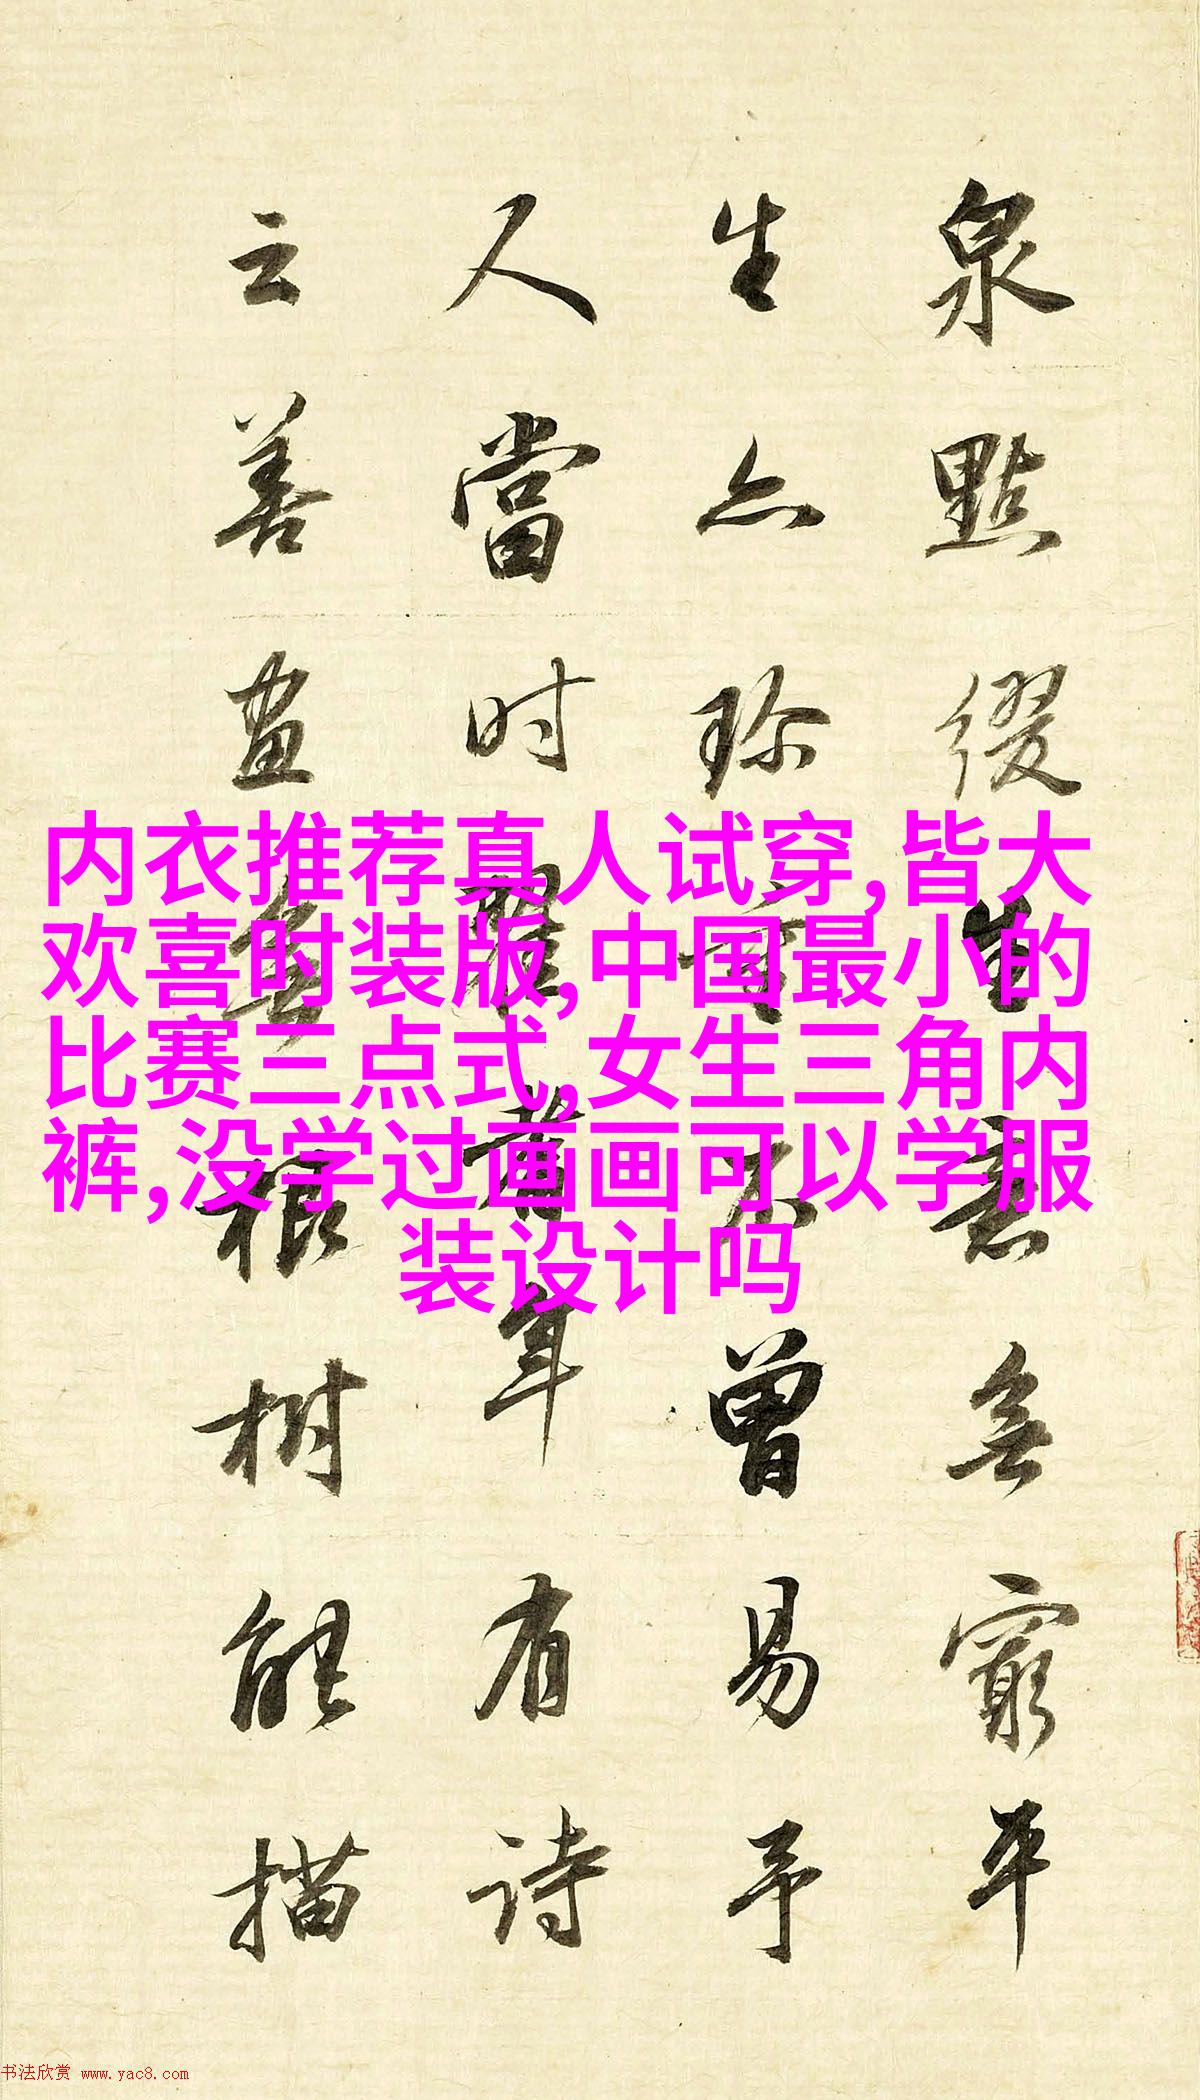 泉點綴生意無窮平
生亦珍
不曾易予
人當時
着年有诗
云善画
無根树能描
内衣推荐真人试穿,皆大
欢喜时装版,中国最小的
比赛三点式,女生三角内
裤,没学过画画可以学服
装设计吗
书法欣赏 www.yac8.com